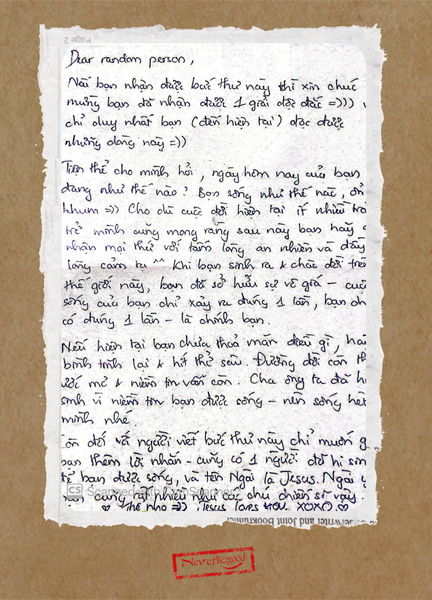 Page 2
Dear random person,
Nếu bạn nhận được bức thư này thì xin chúc
mừng bạn đã nhận được 1 giải độc đắc =)))
chỉ duy nhất bạn (đến hiện tại) đọc được
những dòng này =))
Trên thế cho mình hỏi, ngày hôm nay của bạn
đang như thế nào? Bạn sống như thế nào, ổn
khum =)) Cho dù cuộc đời hiện tại ít nhiều trắ
trẻ mình cũng mong rằng sau này bạn hãy
nhận mọi thứ với tấm lòng an nhiên và đầy
lòng cảm tạ ^^ Khi bạn sinh ra & chào đời trên
thế giới này, bạn đã sở hữu sự vô giá - cuộ
sống của bạn chỉ xảy ra đúng 1 lần, bạn ch
có đúng 1 lần - là chính bạn.
Nếu hiện tại bạn chưa thoả mãn điều gì, hã
bình tĩnh lại & hít thở sâu. Đường đời còn th
ước mơ & niềm tin vẫn còn. Cha ông ta đã hi
sinh vì niềm tin bạn được sống - nên sống hết
mình nhé.
Còn đối với người viết bức thư này chỉ muốn g
bạn thêm lời nhắn - cũng có 1 người đã hi sin
để bạn được sống, và tên Ngài là Jesus. Ngài
bạn cũng rất nhiều như các chú chiến sĩ vậy.
CS Scanned with CamScanner
♡ Thế nhé =)) Jesus loves YOU. XOXO. ♡
erwriter and Joint bookrunner
Neverlieswol